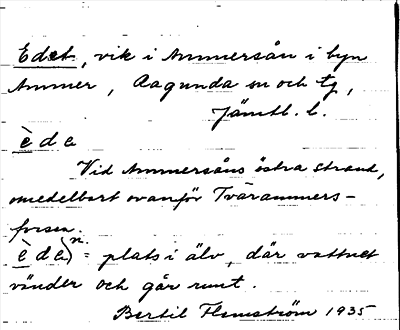 Edet, vik i Ammersån i byn
Ammer, Ragunda sn och tg,
Jämtl. l.
è d a
Vid Ammersåns östra strand,
omedelbart ovanför Tvärammers-
forsen.
è d a) n. = plats i älv, där vattnet
vänder och går runt.
Bertil Flemström 1935